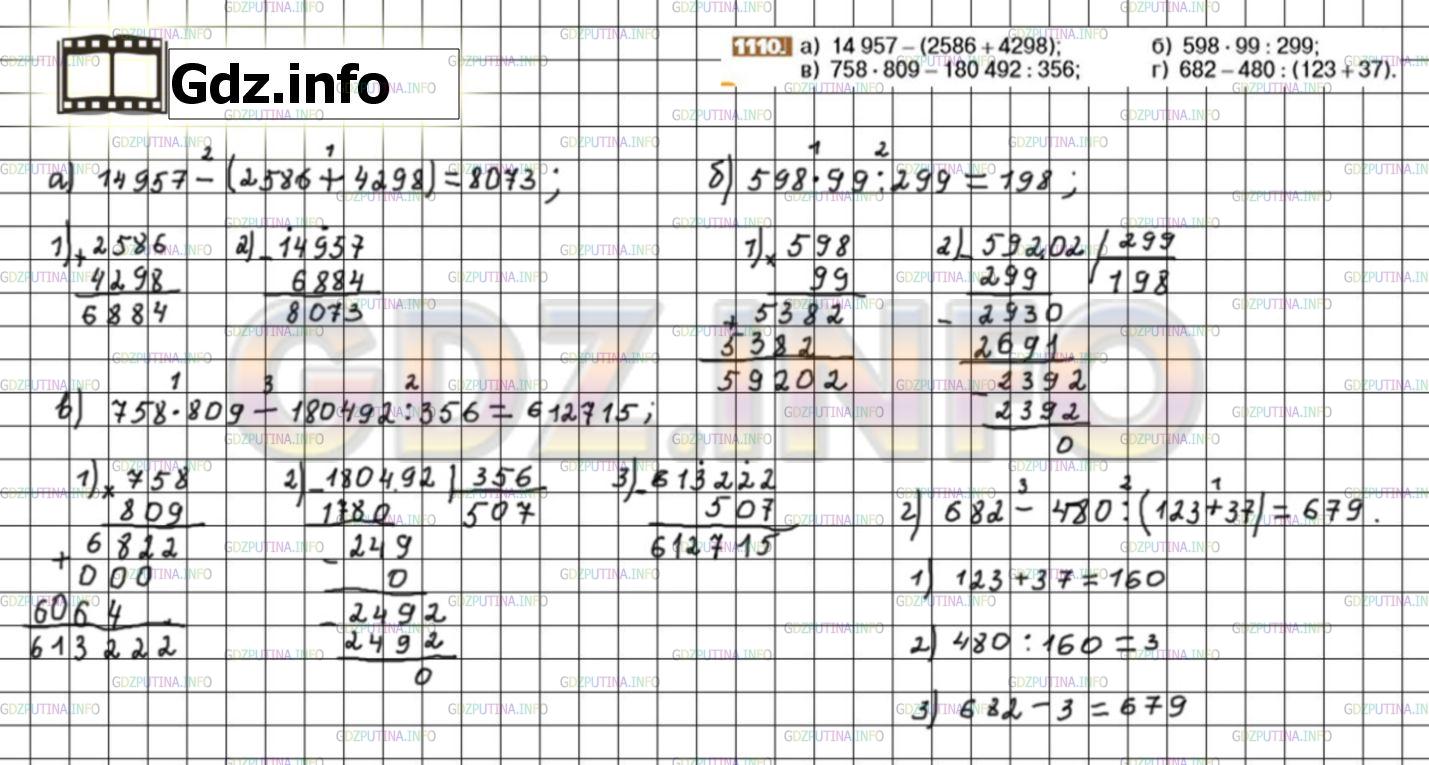 Gdz.info
1110. а) 14 957 – (2586 + 4298); б) 598 · 99 : 299;
в) 758 · 809 – 180 492 : 356; г) 682 – 480 : (123 + 37).
2 1
а) 14957 - (2586 + 4298) = 8073;
1) + 2586
4298
6884
2) - 14957
6884
8073
1 2
б) 598 · 99 : 299 = 198;
1) × 598
99
+ 5382
5382
59202
2) - 59202 299
299 198
- 2930
2691
- 2392
2392
0
1 3 2
в) 758 · 809 - 180492 : 356 = 612715;
1) × 758
809
+ 6822
000
6064
613222
2) - 180492 356
1780 507
- 249
0
- 2492
2492
0
3) - 613222
507
612715
3 2 1
г) 682 - 480 : (123 + 37) = 679.
1) 123 + 37 = 160
2) 480 : 160 = 3
3) 682 - 3 = 679
GDZ.INFO
GDZPUTINA.INFO